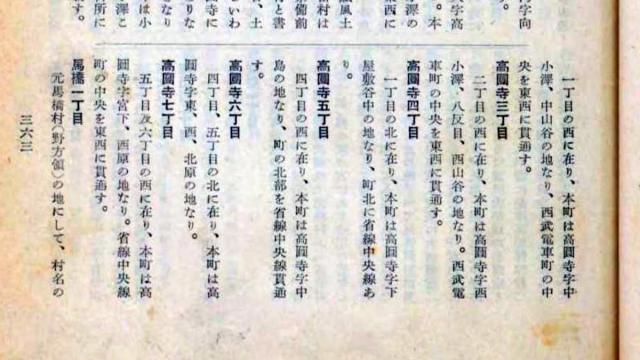 字向
す。
大字高
一丁目の西に在り、本町は高圓寺字中
小澤、中山谷の地なり、西武電車町の中
央を東西に貫通す。
高圓寺三丁目
二丁目の西に在り、本町は高圓寺字西
小澤、八反目、西山谷の地なり。西武電
車町の中央を東西に貫通す。
高圓寺四丁目
一丁目の北に在り、本町は高圓寺字下
屋敷谷中の地なり、町北に省線中央線あ
り。
高圓寺五丁目
四丁目の西に在り、本町は高圓寺字中
島の地なり、町の北部を省線中央線貫通
す。
高圓寺六丁目
四丁目、五丁目の北に在り、本町は高
圓寺字東、西、北原の地なり。
高圓寺七丁目
五丁目及六丁目の西に在り、本町は高
圓寺字宮下、西原の地なり。省線中央線
町の中央を東西に貫通す。
馬橋一丁目
元馬橋村(野方領)の地にして、村名の
三六三